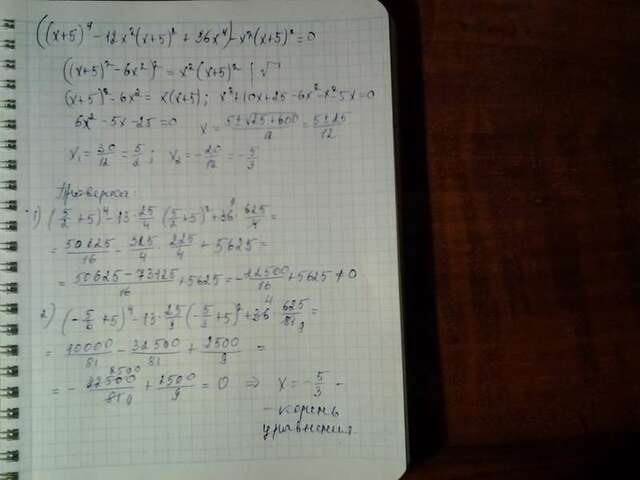 ((x+5)⁴ - 12x²(x+5)² + 36x⁴) - x²(x+5)² = 0
((x+5)² - 6x²)² = x²(x+5)² | √
(x+5)² - 6x² = x(x+5); x²+10x+25-6x²-x²-5x=0
6x² - 5x - 25 = 0 x = 5±√25+600/12 = 5±25/12
x₁ = 30/12 = 5/2; x₂ = -20/12 = -5/3
Проверка:
1) (5/2+5)⁴ - 13·25/4 (5/2+5)² + 36·625/4 =
= 50625/16 - 325/4 · 225/4 + 5625 =
= 50625-73125/16 + 5625 = -22500/16 + 5625 ≠ 0
2) (-5/3+5)⁴ - 13·25/9 (-5/3+5)² + 36·625/81 =
= 10000/81 - 32500/81 + 2500/9 =
= -22500/81 + 2500/9 = 0 ⇒ x = -5/3 -
- корень
уравнения